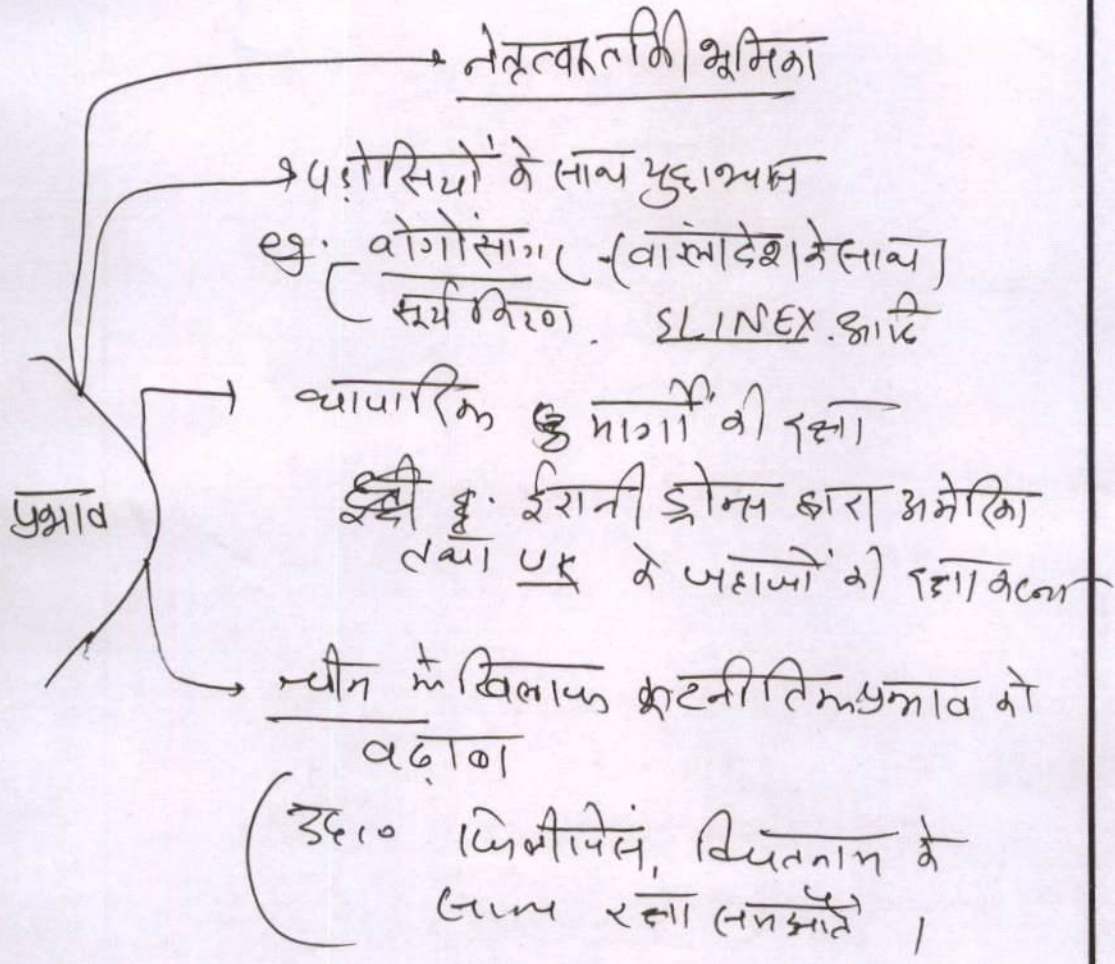 नेतृत्वकर्ता की भूमिका
पड़ोसियों के साथ युद्धाभ्यास
eg. बोंगोसागर (बांग्लादेश के साथ)
सूर्य किरण. SLINEX. आदि
व्यापारिक मार्गों की रक्षा
ईरानी ड्रोन्स द्वारा अमेरिका
तथा UK के जहाजों की रक्षा करना
प्रभाव
चीन के खिलाफ कूटनीतिक प्रभाव को
बढ़ाना
उदा० फिलीपींस, वियतनाम के
साथ रक्षा समझौते ।